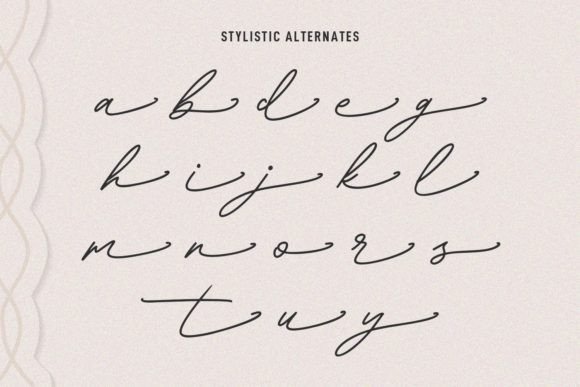 STYLISTIC ALTERNATES
a b d e g
h i j k l
m n o r s
t u y